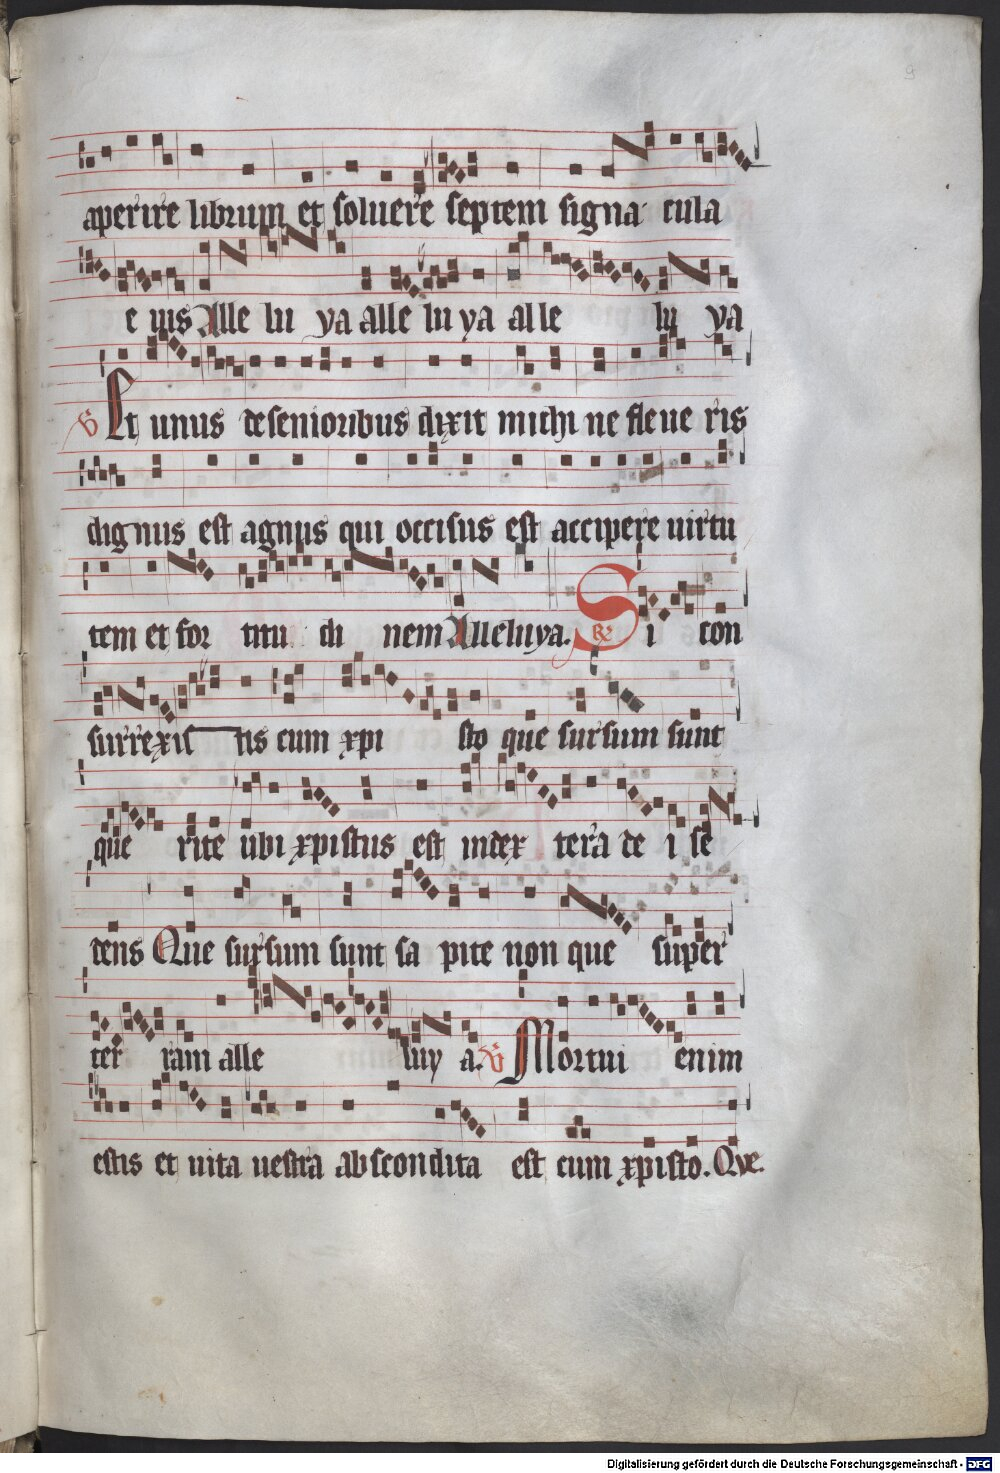 9
aperire librum et soluere septem signa cula
e ius Alle lu ya alle lu ya al le lu ya
V Et unus de senioribus dixit michi ne fle ue ris
dignus est agnus qui occisus est accipere uirtu
tem et for titu di nem Alleluya. R Si con
surrexis tis cum xpi sto que sursum sunt
que rite ubi xpistus est in dex tera de i se
dens Que sursum sunt sa pite non que super
ter ram alle luy a. V Mortui enim
estis et uita uestra abscondita est cum xpisto. Que.
Digitalisierung gefördert durch die Deutsche Forschungsgemeinschaft - DFG